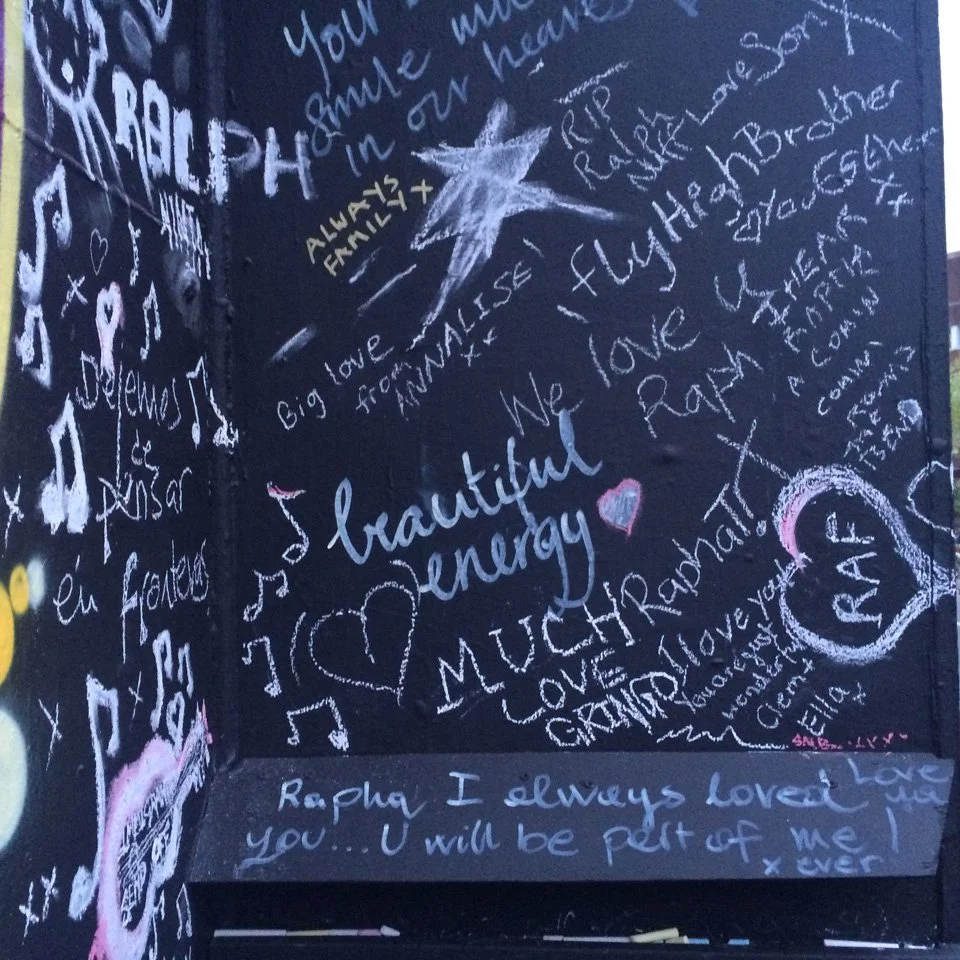 Your
Smile
in our hearts
RALPH
RIP
Ralph
Love Son X
ALWAYS
FAMILY X
Fly High Brother
♡ You Esther
xx
Big love
from ANNALISE
xx
We love U
Raph
I HEAR
A COMIN
COMIN
BEND
Dejemos
de
pensar
en fronteras
x
beautiful
energy
RAF
MUCH
LOVE
GRINGO
Rapha
I love you
You are just
wonderful
Gem x
Ella x
x
xx
Rapha I always loved
you... U will be part of me!
x ever
Love
ya